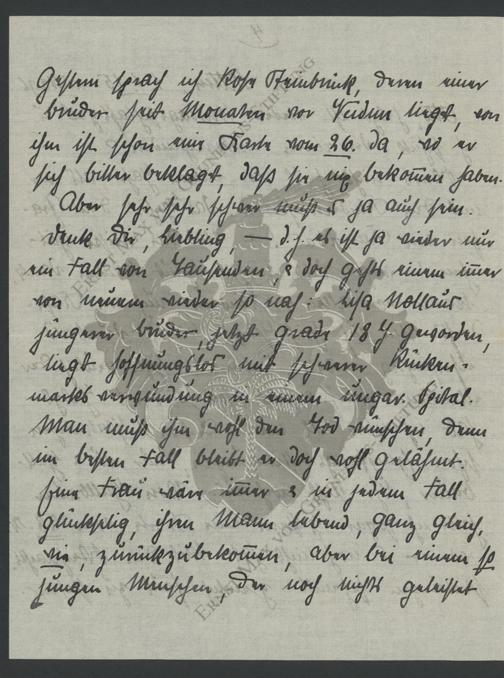 4
Gestern sprach ich Rose Steinbrück, deren einer
bruder seit Monaten vor Verdun liegt, von
ihm ist schon eine Karte vom 26. da, wo er
sich bitter beklagt, daß sie nix bekom̄en haben.
Aber sehr sehr schwer muß es ja auch sein.
denk Dir, Liebling, — d.h. es ist ja wieder nur
ein Fall von Tausenden, & doch gehts einem im̄er
von neuem wieder so nah: Lisa Nollaus
jüngerer bruder, jetzt grade 18 J. geworden,
liegt hoffnungslos mit schwerer Rücken-
marksverwundung in einem ungar. Spital.
Man muß ihm wohl den Tod wünschen, denn
im besten Fall bleibt er doch wohl gelähmt.
Eine Frau wäre im̄er & in jedem Fall
glückselig, ihren Mann lebend, ganz gleich,
wie, zurückzubekom̄en, aber bei einem so
jungen Menschen, der noch nichts geleistet